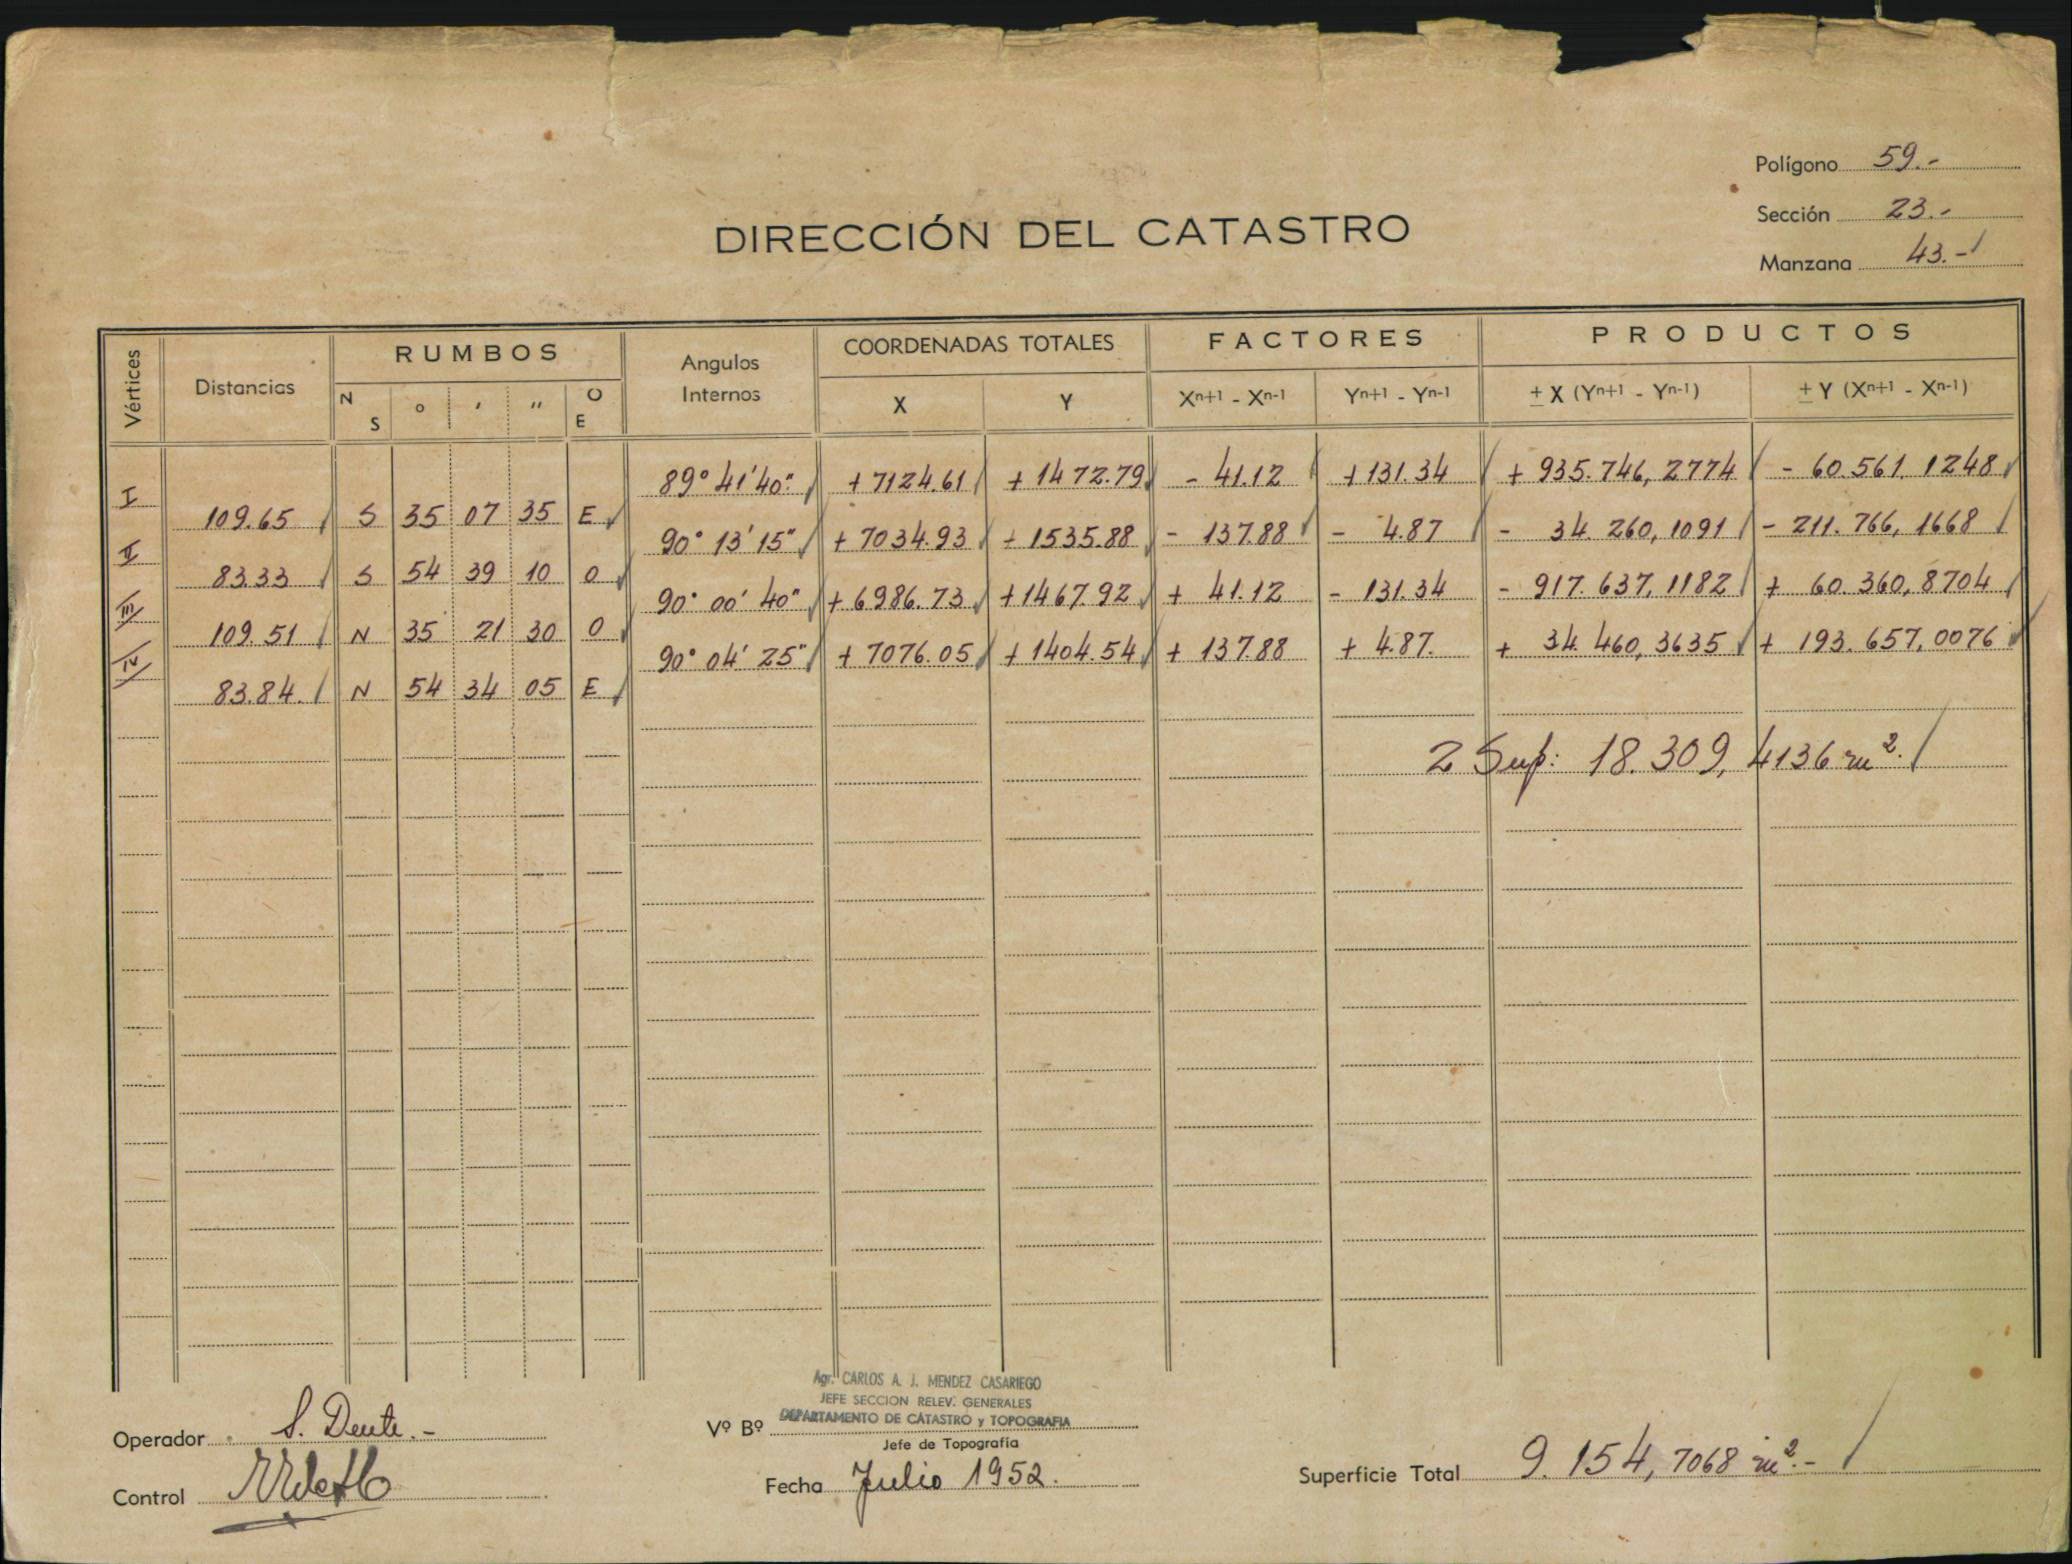 Polígono 59.-
Sección 23.-
DIRECCIÓN DEL CATASTRO
Manzana 43.-
Vértices Distancias RUMBOS Angulos Internos COORDENADAS TOTALES FACTORES PRODUCTOS
N S ° ' " O E X Y Xn+1 - Xn-1 Yn+1 - Yn-1 ± X (Yn+1 - Yn-1) ± Y (Xn+1 - Xn-1)
I 89° 41' 40" + 7124.61 + 1472.79 - 41.12 + 131.34 + 935.746,2774 - 60.561.1248
109.65 S 35 07 35 E
II 90° 13' 15" + 7034.93 + 1535.88 - 137.88 - 4.87 - 34.260,1091 - 211.766,1668
83.33 S 54 39 10 O
III 90° 00' 40" + 6986.73 + 1467.92 + 41.12 - 131.34 - 917.637,1182 + 60.360,8704
109.51 N 35 21 30 O
IV 90° 04' 25" + 7076.05 + 1404.54 + 137.88 + 4.87. + 34.460,3635 + 193.657,0076
83.84. N 54 34 05 E
2 Sup: 18.309,4136 m².
Agr. CARLOS A. J. MENDEZ CASARIEGO
JEFE SECCION RELEV. GENERALES
DEPARTAMENTO DE CATASTRO y TOPOGRAFIA
Operador S. Dente.-
Vº Bº
Jefe de Topografía
Control
Fecha Julio 1952.
Superficie Total 9.154,7068 m².-